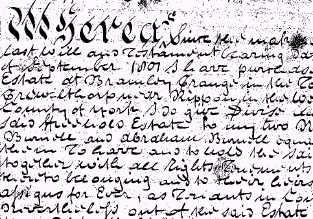 Whereas Since the making
last Will and Testament bearing Da
of September 1801 I have purchas
Estate at Branton Grange in the To
near Rippon in the We
County of York I do give Devise
said Freehold Estate to my two N
Burnell and Abraham Burnell equa
them To have and to hold the sai
together with all Rights
thereto belonging and to their heirs
assigns for Ever, as Tenants in Co
Nevertheless out of the said Estate